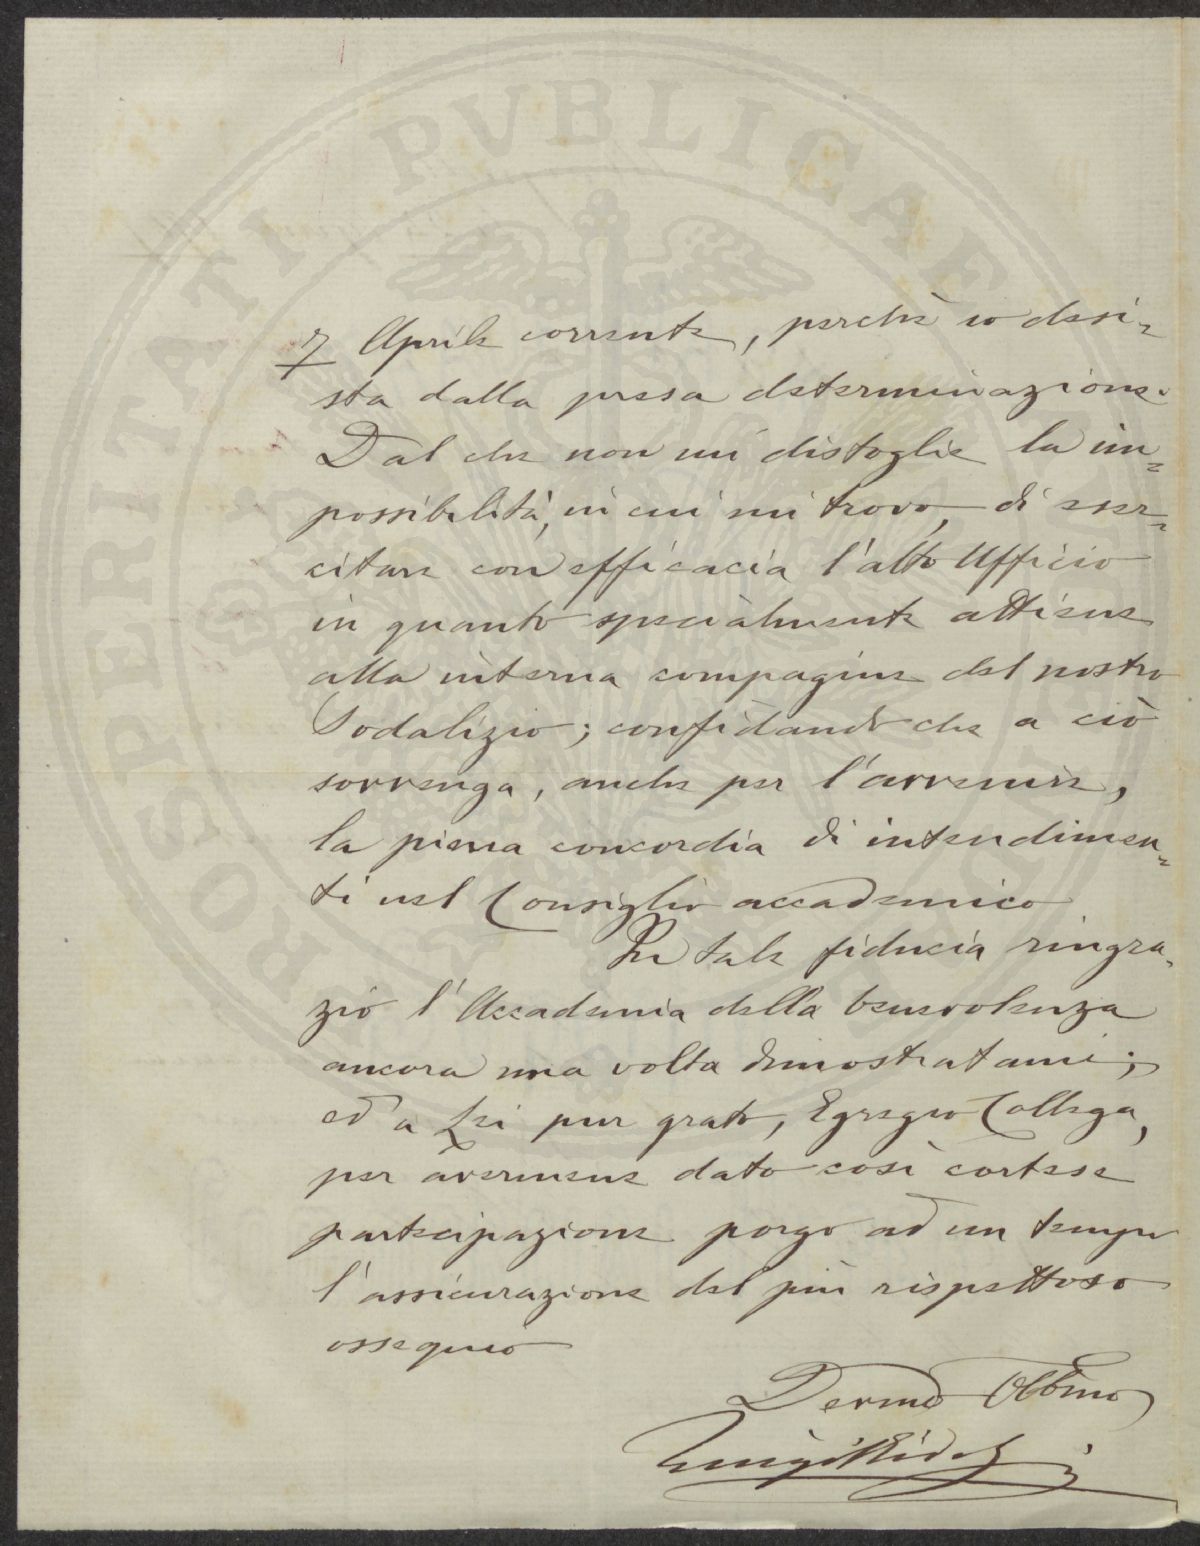 7 Aprile corrente, perchè io desi=
sta dalla presa determinazione.
Dal che non mi distoglie la im=
possibilità, in cui mi trovo, di eser=
citare con efficacia l'alto Ufficio
in quanto specialmente attiene
alla interna compagine del nostro
Sodalizio; confidando che a ciò
sovvenga, anche per l'avvenire,
la piena concordia di intendimen=
ti nel Consiglio accademico
In tale fiducia ringra=
zio l'Accademia della benevolenza
ancora una volta dimostratami;
ed a Lei pur grato, Egregio Collega,
per avermene dato così cortese
partecipazione porgo ad un tempo
l'assicurazione del più rispettoso
ossequio
Devmo Obbmo
Luigi
PROSPERITATI PVBLICAE